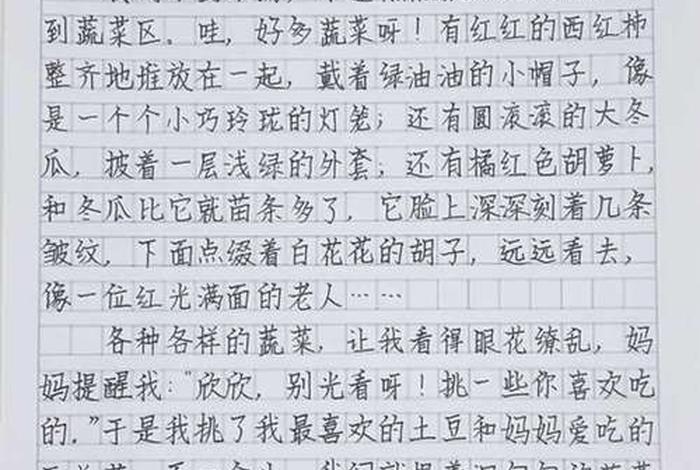 到蔬菜区。哇，好多蔬菜呀！有红红的西红柿
整齐地堆放在一起，戴着绿油油的小帽子，像
是一个个小巧玲珑的灯笼；还有圆滚滚的大冬
瓜，披着一层浅绿的外套；还有橘红色胡萝卜，
和冬瓜比它就苗条多了，它脸上深深刻着几条
皱纹，下面点缀着白花花的胡子，远远看去，
像一位红光满面的老人……
各种各样的蔬菜，让我看得眼花缭乱，妈
妈提醒我：“欣欣，别光看呀！挑一些你喜欢吃
的。”于是我挑了我最喜欢的土豆和妈妈爱吃的